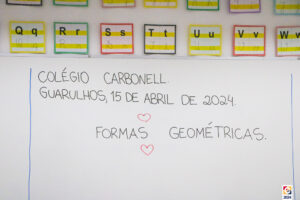 Qq Rr Ss Tt Uu Vv Ww
COLÉGIO CARBONELL.
GUARULHOS, 15 DE ABRIL DE 2024.
FORMAS GEOMÉTRICAS.